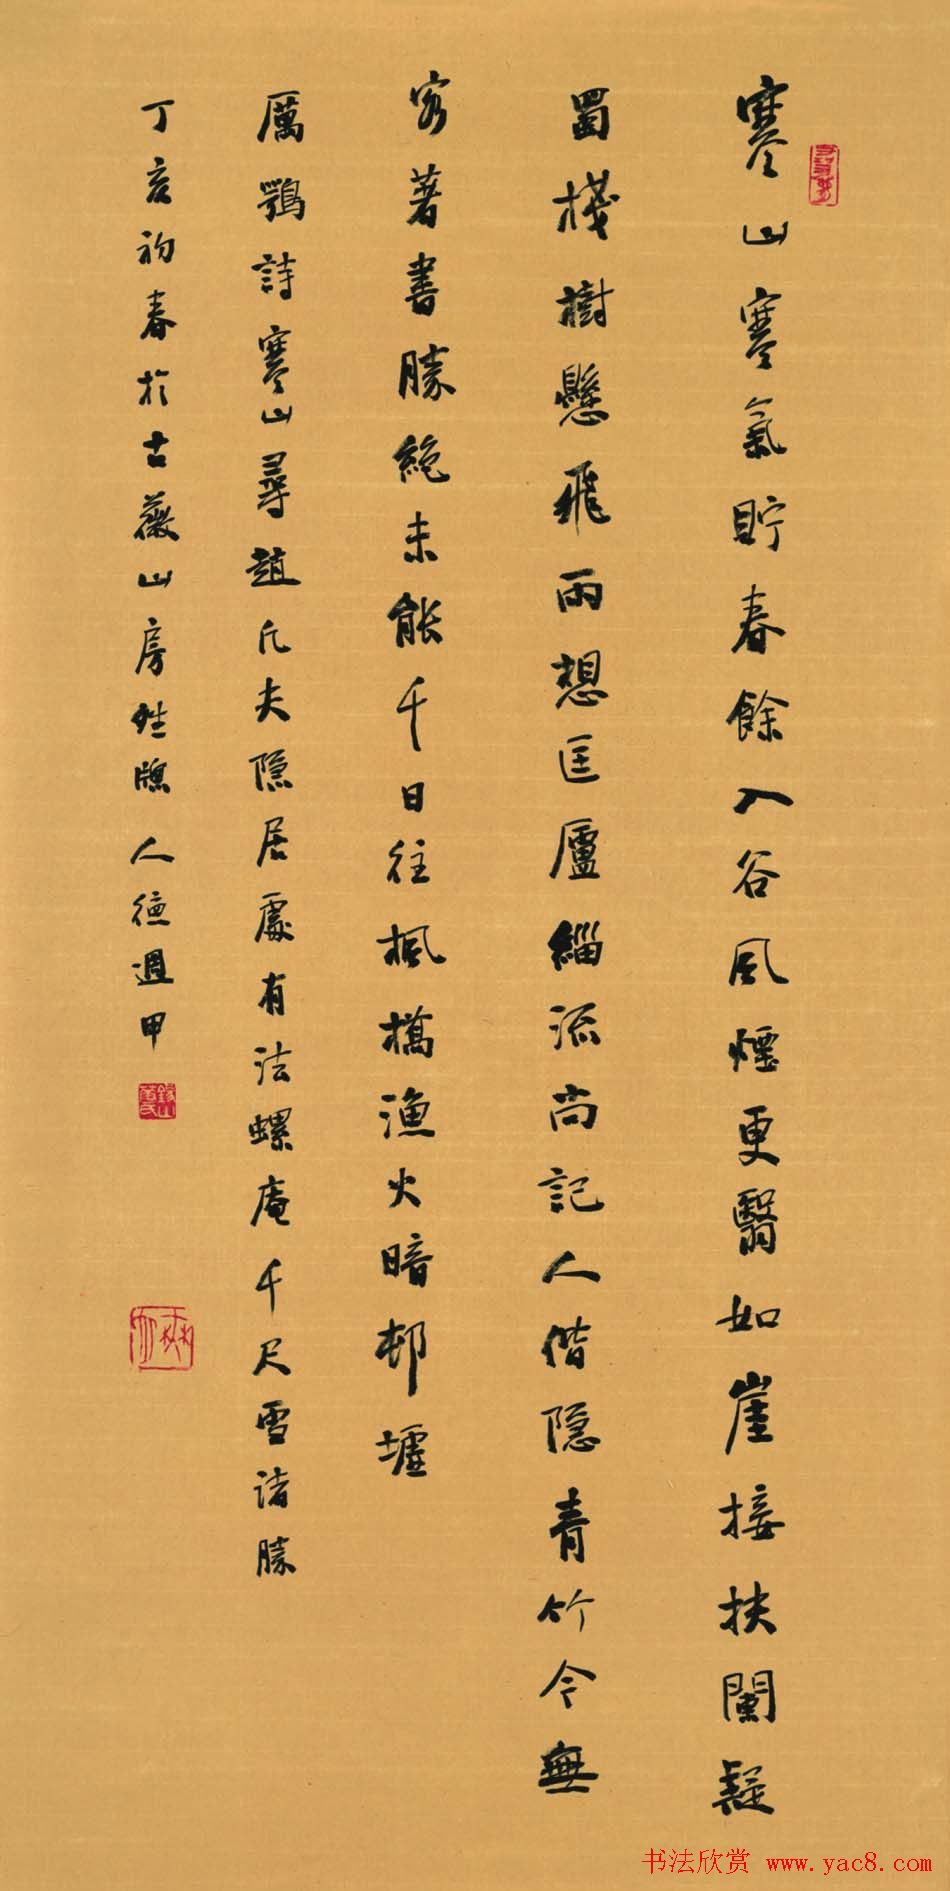 寒山寒氣貯春餘入谷風煙更翳如崖接扶闌疑
蜀棧樹懸飛雨想匡廬緇流尚記人偕隱青竹今無
客著書勝絶未能千日往楓橋漁火暗邨墟
厲鶚詩寒山尋趙凡夫隱居處有法螺庵千尺雪諸勝
丁亥初春於古薇山房 人德週甲
书法欣赏 www.yac8.com